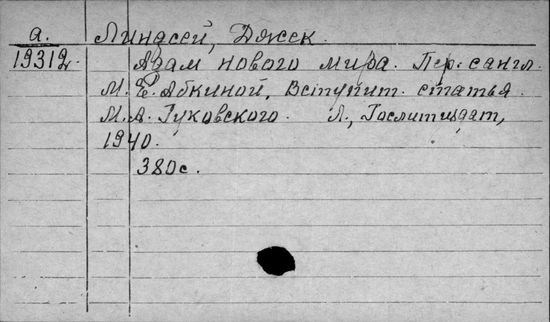 а. Линдсей, Джек.
19312. Адам нового мира. Пер. с англ.
М. Е. Абкиной, Вступит. статья
М. А. Гуковского. Л., Гослитиздат,
1940.
380с.